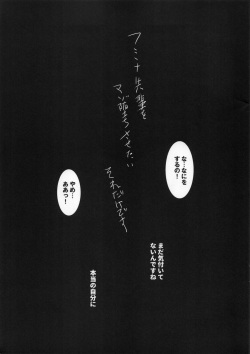 フミナ先輩を
マゾ堕ちさせたい
それだけです
な…なにを
するの!
やめ…
ああっ!
まだ気付いて
ないんですね
本当の自分に